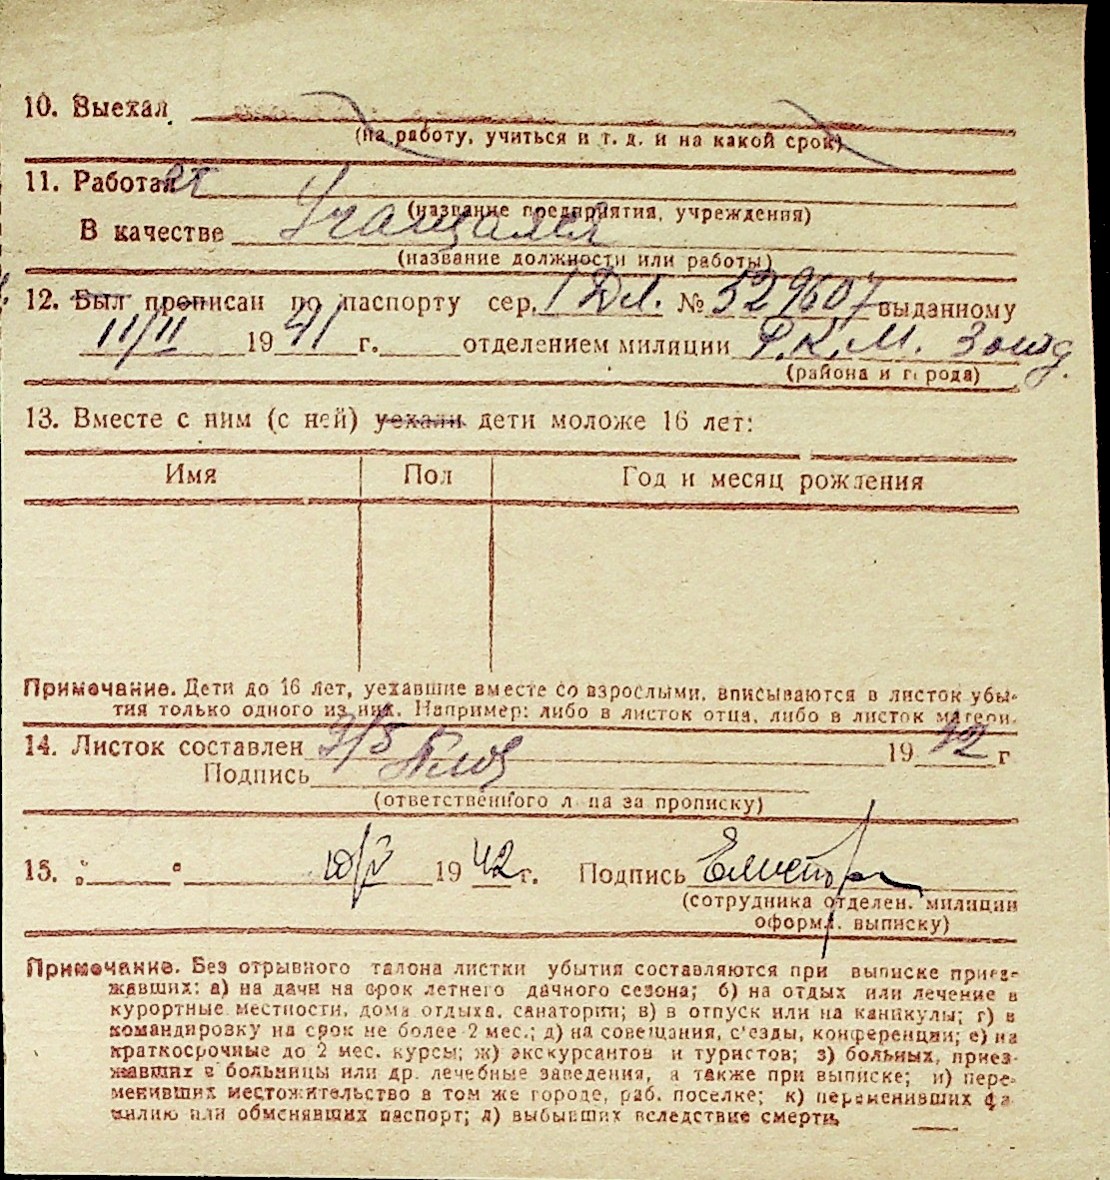 10. Выехал
(на работу, учиться и т. д. и на какой срок)
11. Работает
(название предприятия, учреждения)
В качестве Учащаяся
(название должности или работы)
12. Был прописан по паспорту сер. I № 529607 выданному
11/II 1941 г. отделением милиции Р.К.М.
(района и города)
13. Вместе с ним (с ней) уехали дети моложе 16 лет:
Имя Пол Год и месяц рождения
Примечание. Дети до 16 лет, уехавшие вместе со взрослыми, вписываются в листок убы-
тия только одного из них. Например: либо в листок отца, либо в листок матери.
14. Листок составлен 3/5 1942 г
Подпись
(ответственного лица за прописку)
15. " " 10/V 1942 г. Подпись
(сотрудника отделен. милиции
оформ. выписку)
Примечание. Без отрывного талона листки убытия составляются при выписке приез-
жавших: а) на дачи на срок летнего дачного сезона; б) на отдых или лечение в
курортные местности, дома отдыха, санатории; в) в отпуск или на каникулы; г) в
командировку на срок не более 2 мес.; д) на совещания, с'езды, конференции; е) на
краткосрочные до 2 мес. курсы; ж) экскурсантов и туристов; з) больных, приез-
жавших в больницы или др. лечебные заведения, а также при выписке; и) пере-
менивших местожительство в том же городе, раб. поселке; к) переменивших фа-
милию или обменявших паспорт; л) выбывших вследствие смерти.